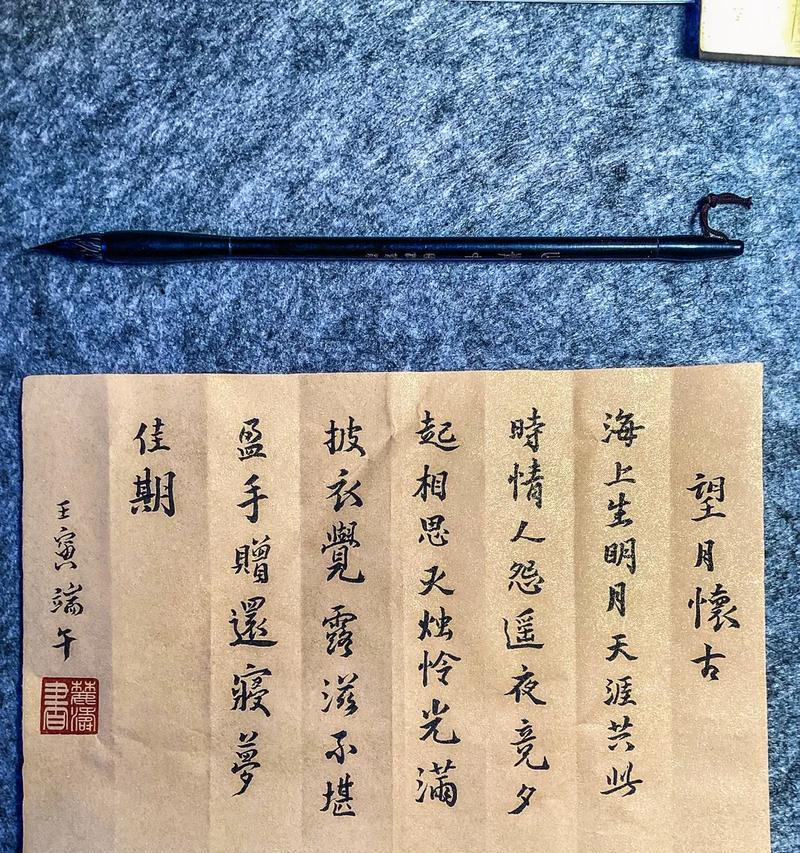 望月懷古
海上生明月天涯共此
時情人怨遥夜竟夕
起相思灭烛怜光滿
披衣覺露滋不堪
盈手贈還寢夢
佳期
壬寅端午